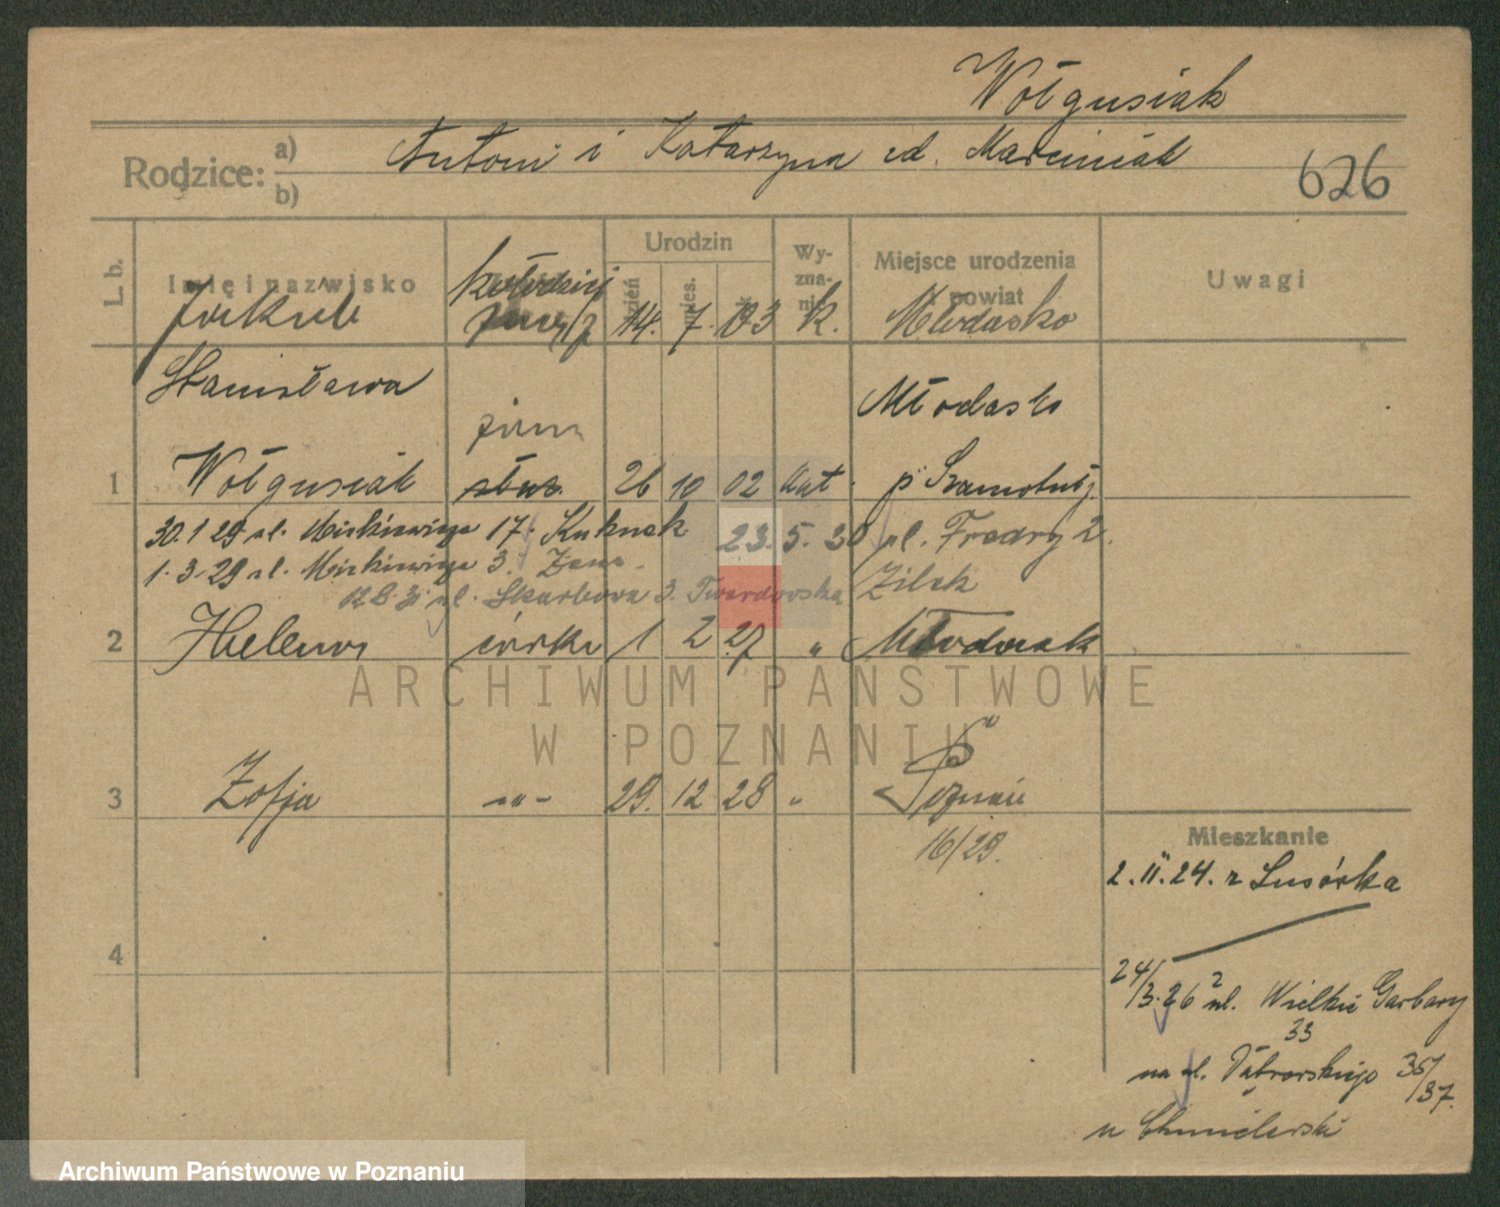 Wołgusiak
Rodzice: a) Antoni i Katarzyna zd. Marciniak
b)
626
L. b. Imię i nazwisko Urodzin dzień mies. Wyznanie Miejsce urodzenia powiat Uwagi
Jakub kołodziej 14. 7. 03 K. Młodasko
Stanisława Młodasko
żona
1 Wołgusiak służ. 26 10 02 kat. p. Szamotuły
30.1 29 ul. Mickiewicza 17. Kuknak 23.5.30 pl. Fredry 2.
1.3.29 ul. Mickiewicza 3. Żilak
ul. Skarbowa 3. Twardowska
2 Helena córka 1 2 27 " Młodask
3 Zofja -"- 29. 12 28 " Poznań
16/29.
Mieszkanie
2.II.24. z Lusówka
4
24/3.26 z ul. Wielkie Garbary
33
na ul. Dąbrowskiego 35/37.
u Chmielarski
ARCHIWUM PAŃSTWOWE
W POZNANIU
Archiwum Państwowe w Poznaniu